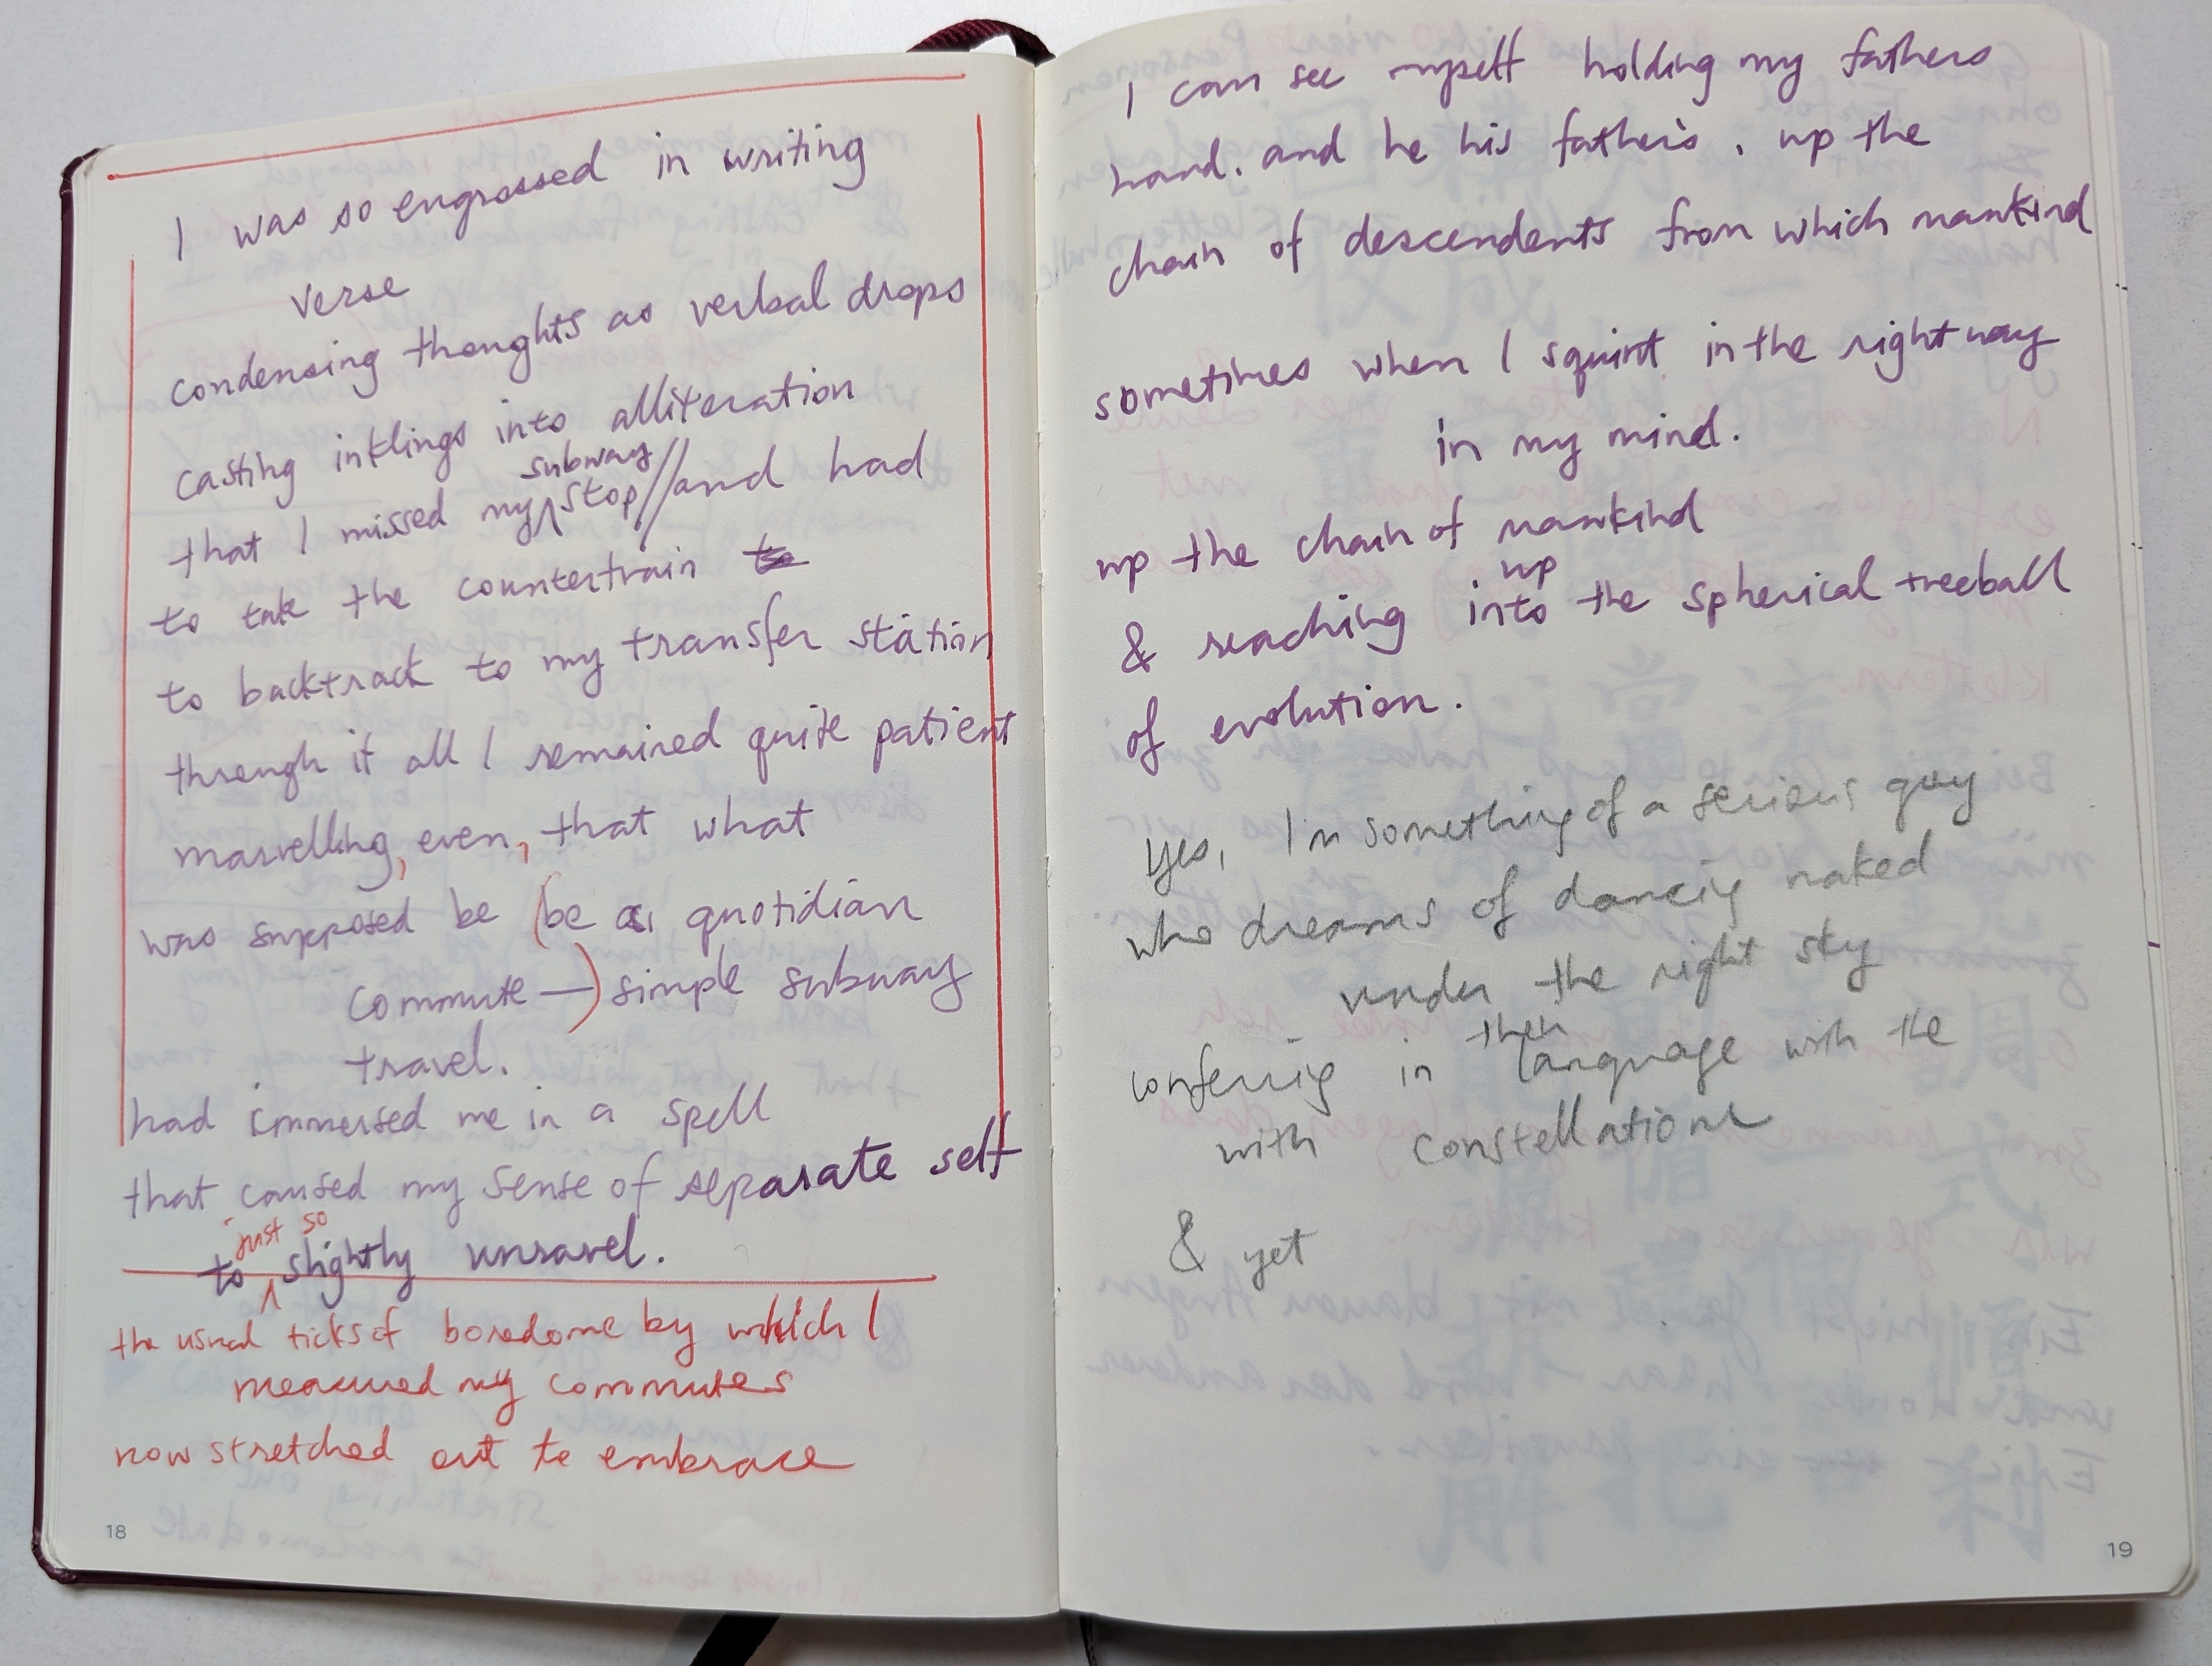 I was so engrossed in writing
verse
condensing thoughts as verbal drops
casting inklings into alliteration
subway
that I missed my stop // and had
to take the countertrain to
to backtrack to my transfer station
through it all I remained quite patient
marvelling, even, that what
was supposed be (be a quotidian
commute —) simple subway
travel.
had immersed me in a spell
that caused my sense of separate self
just so
to slightly unravel.
the usual ticks of boredome by which I
measured my commutes
now stretched out to embrace
18
I can see myself holding my fathers
hand. and he his father's, up the
chain of descendents from which mankind
sometimes when I squint in the right way
in my mind.
up the chain of mankind
up
& reaching into the spherical treeball
of evolution.
yes, I'm something of a serious guy
who dreams of dancing naked
under the right sky
then
conferring in language with the
with constellations
& yet
19